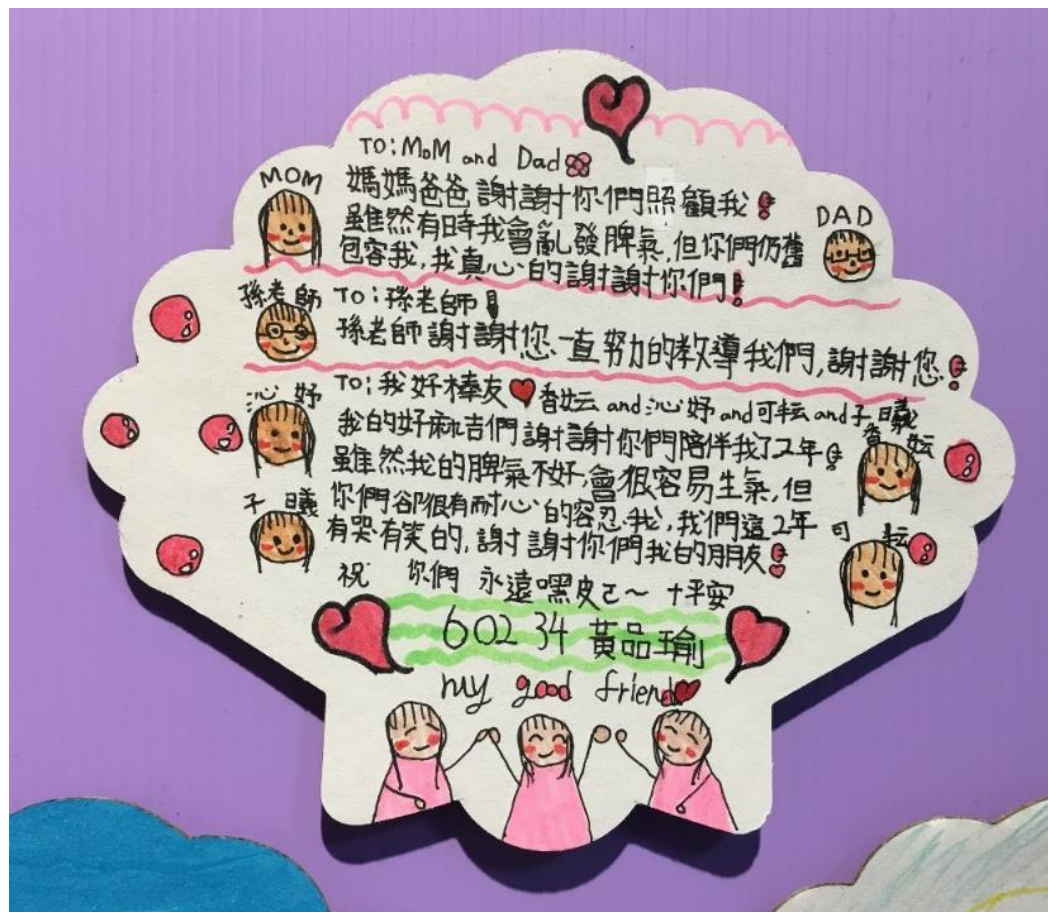 TO:MoM and Dad
MOM
媽媽爸爸謝謝你們照顧我!
DAD
雖然有時我會亂發脾氣,但你們仍舊
包容我,我真心的謝謝你們!
孫老師
TO:孫老師!
孫老師謝謝您一直努力的教導我們,謝謝您!
TO:我好棒友❤香妘and沁妤and可耘and子曦
沁妤
我的好麻吉們謝謝你們陪伴我了2年!
香妘
雖然我的脾氣不好,會很容易生氣,但
子曦
你們卻很有耐心的容忍我,我們這2年
可耘
有哭有笑的,謝謝你們我的朋友!
祝 你們 永遠嘿皮ㄛ～ +平安
602 34 黃品瑜
my good friend